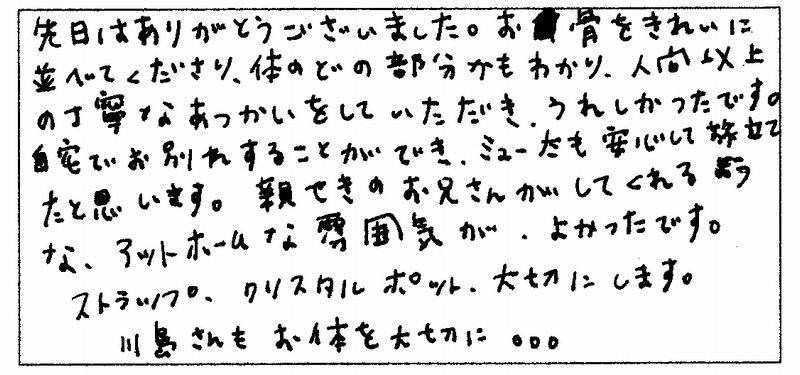 先日はありがとうございました。お骨をきれいに
並べてくださり、体のどの部分かもわかり、人間以上
の丁寧なあつかいをしていただき、うれしかったです。
自宅でお別れすることができ、ミューたも安心して旅立て
たと思います。親せきのお兄さんがしてくれる様
な、アットホームな雰囲気が、よかったです。
ストラップ、クリスタルポット、大切にします。
川島さんもお体を大切に。。。